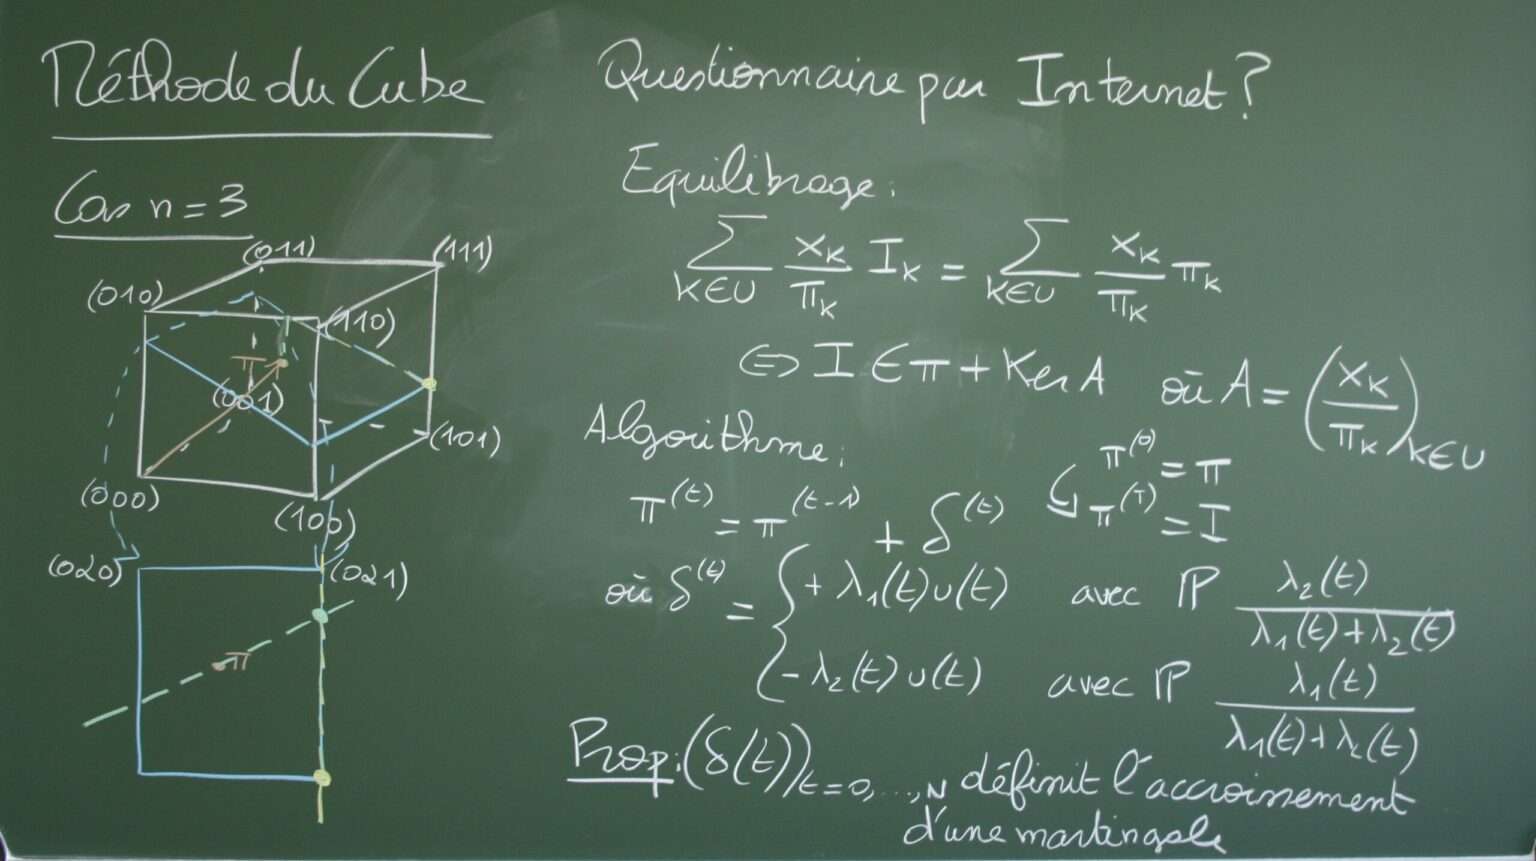 Méthode du Cube
Cas n = 3
(011) (111)
(010) (110)
π
(001)
(101)
(000)
(100)
(020) (021)
π
Questionnaire par Internet ?
Equilibrage :
∑_{k∈U} x_k/π_k I_k = ∑_{k∈U} x_k/π_k π_k
⇔ I ∈ π + Ker A où A = (x_k/π_k)_{k∈U}
Algorithme :
π^(0) = π
π^(T) = I
π^(t) = π^(t-1) + δ^(t)
où δ^(t) = { + λ₁(t) u(t) avec ℙ λ₂(t)/(λ₁(t)+λ₂(t))
- λ₂(t) u(t) avec ℙ λ₁(t)/(λ₁(t)+λ₂(t))
Prop : (δ(t))_{t=0,...,N} définit l'accroissement
d'une martingale